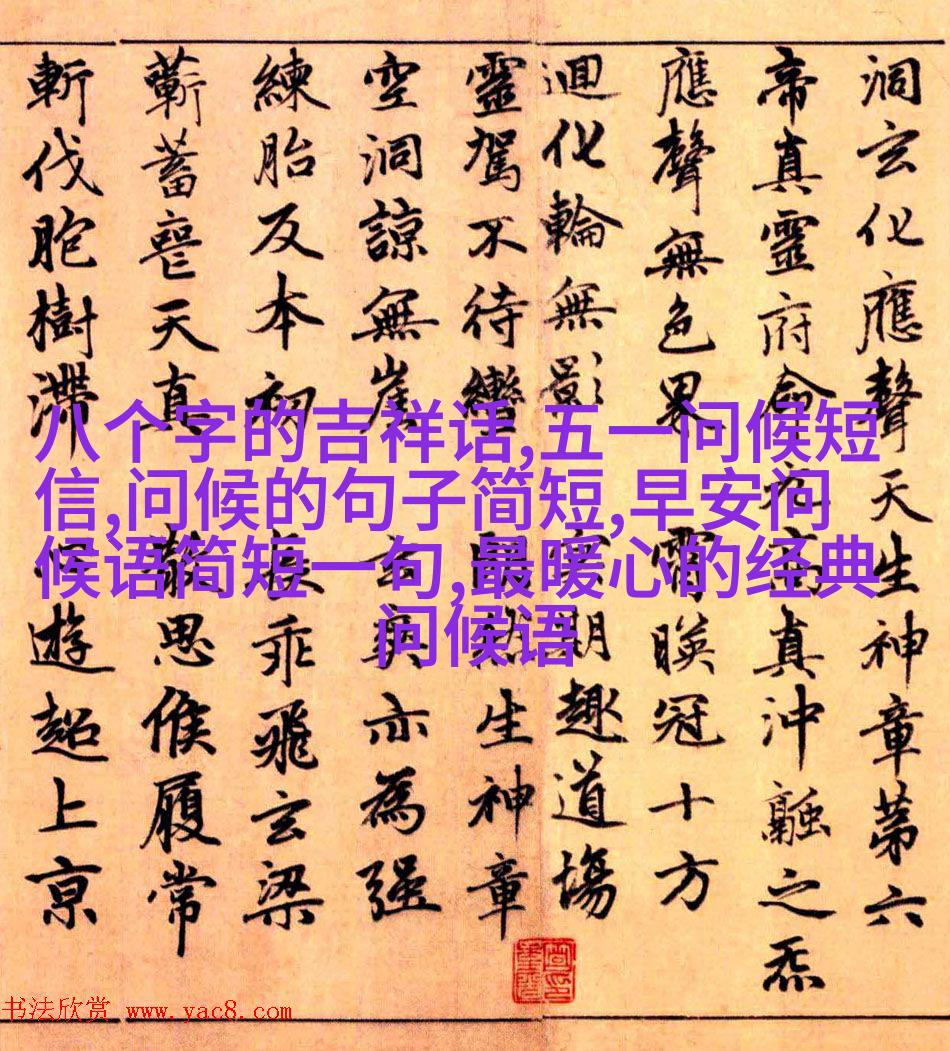 洞玄化應聲天生神章第六
帝真靈府命元高真沖融之炁
應聲無色界 霄暎冠十方
迴化輪無影 冥期趣道場
靈駕不待轡 自然生神章
空洞諒無崖 玄爽亦為强
練胎反本初 長乖飛玄梁
蘄蓄喪天真 散思候履常
斬伐胞樹滯 心遊超上亰
八个字的吉祥话,五一问候短
信,问候的句子简短,早安问
候语简短一句,最暖心的经典
问候语
书法欣赏 www.yac8.com